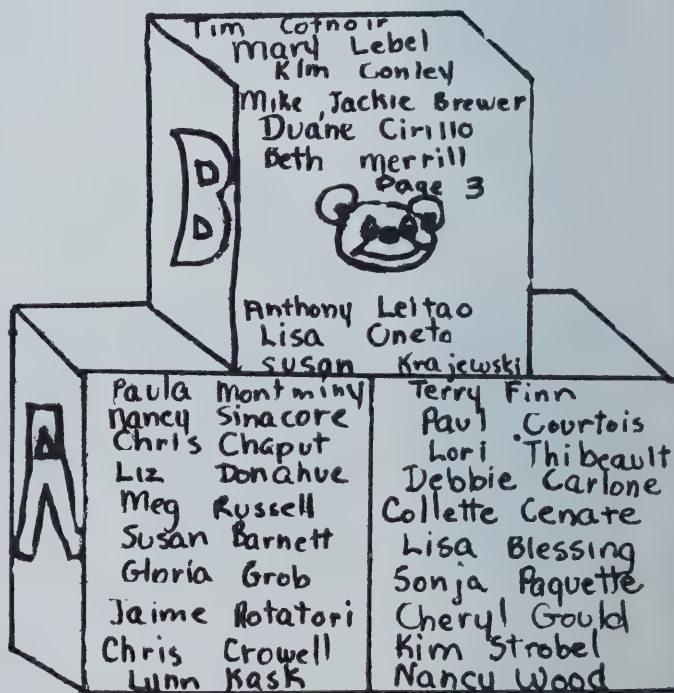 Tim Cotnoir
Mary Lebel
Kim Conley
Mike, Jackie Brewer
Duane Cirillo
Beth merrill
Page 3
B
Anthony Leitao
Lisa Oneto
Susan Krajewski
A
Paula Montminy
nancy Sinacore
Chris Chaput
Liz Donahue
Meg Russell
Susan Barnett
Gloria Grob
Jaime Rotatori
Chris Crowell
Lynn Kask
Terry Finn
Paul Courtois
Lori Thibeault
Debbie Carlone
Collette Cenate
Lisa Blessing
Sonja Paquette
Cheryl Gould
Kim Strobel
Nancy Wood